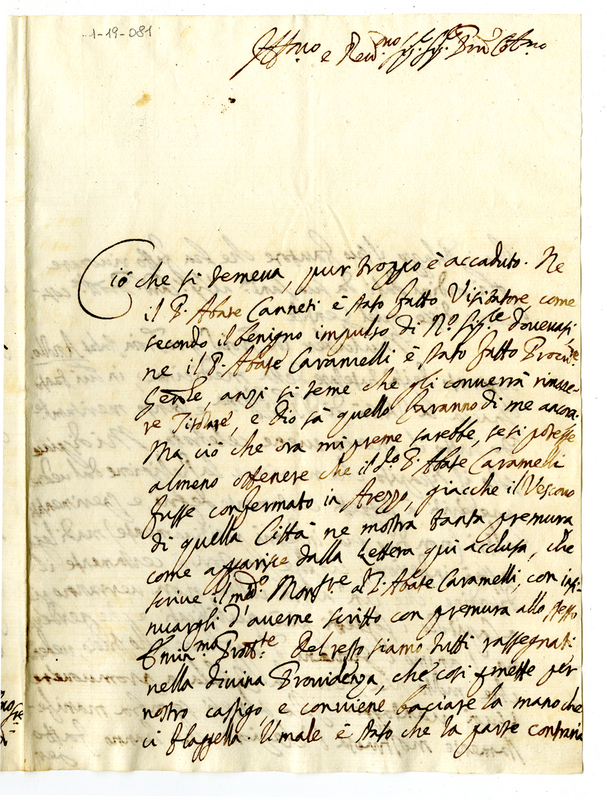 1-19-081
Ill.mo e Rev.mo Sig. Sig. P.ron Col.mo
Ciò che si temeua, pur troppo è accaduto. Ne
il P. Abate Canneti è stato fatto Visitatore come
secondo il benigno impulso di N.ro Sig.re doueuasi
ne il P. Abate Caramelli è stato fatto Proc.re
Gen.le, anzi si teme che gli conuerrà rimane-
re Titolare, e Dio sà quello faranno di me ancora.
Ma ciò che ora mi preme sarebbe, se si potesse
almeno ottenere che il d.o P. Abate Caramelli
fusse confermato in Arezzo, giacche il Vescouo
di quella Città ne mostra tanta premura
come apparisce dalla lettera qui acclusa, che
scriue il med.o Mons.re al P. Abate Caramelli, con insi-
nuargli d'auerne scritto con premura allo stesso
Emin.mo Prott.re Del resto siamo tutti rassegnati
nella diuina Prouidenza, che così permette per
nostro castigo, e conuiene baciare la mano che
ci flagella. Il male è stato che la parte contraria